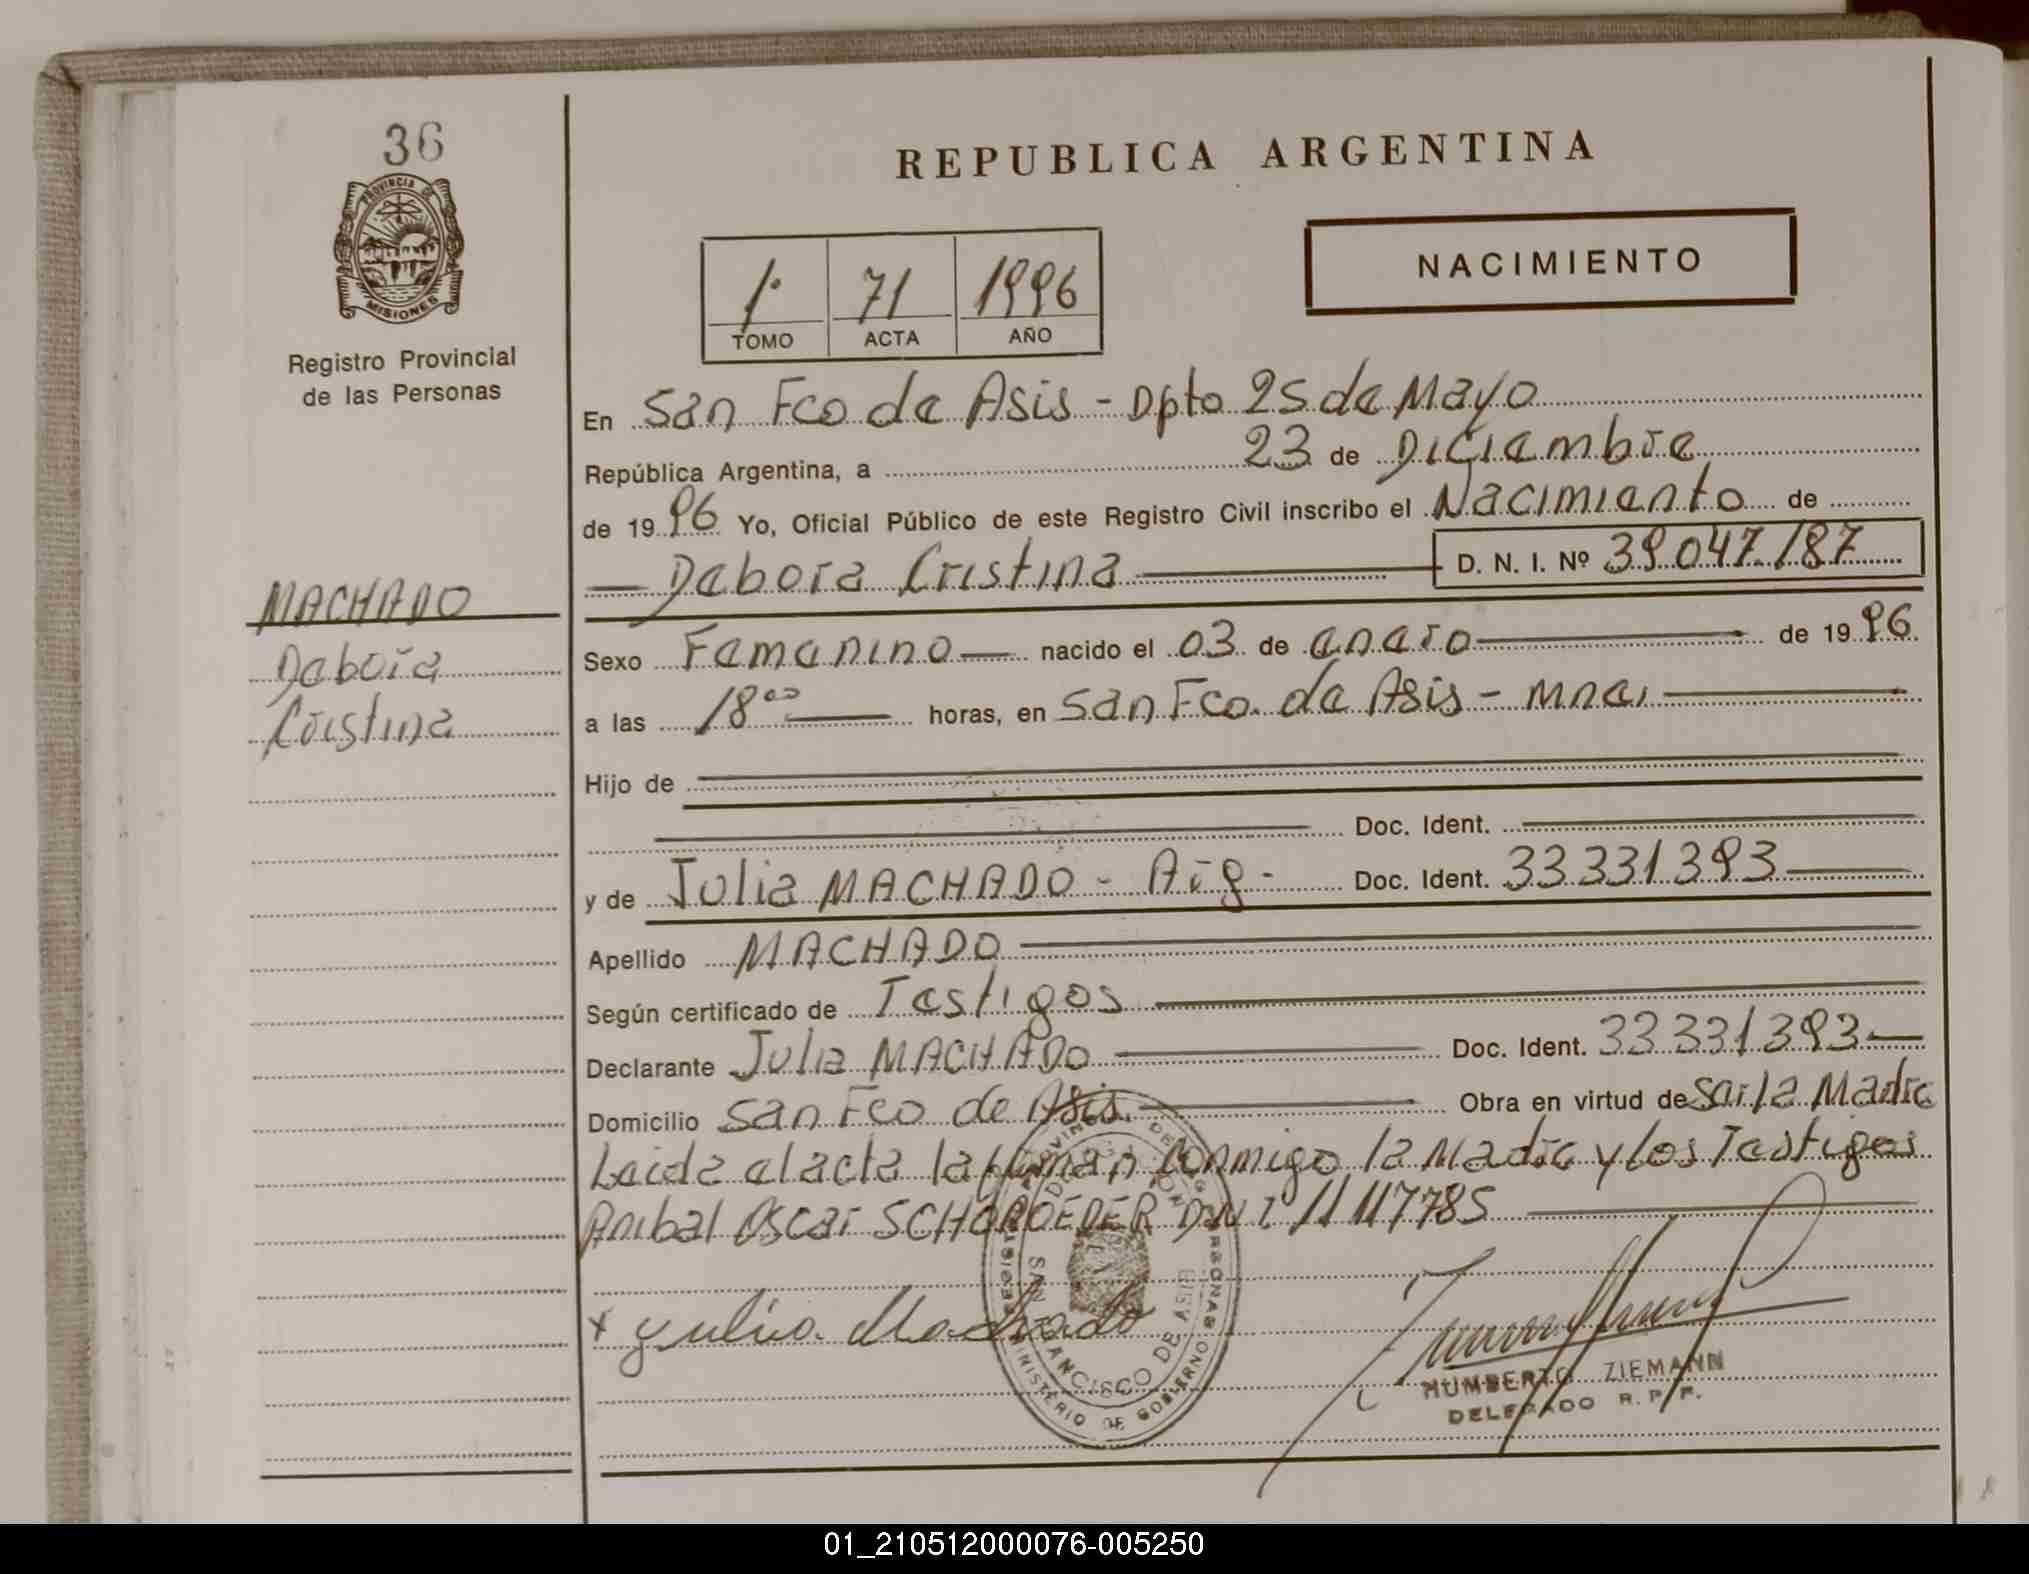 36
PROVINCIA DE
MISIONES
Registro Provincial
de las Personas
MACHADO
Debora
Cristina
REPUBLICA ARGENTINA
NACIMIENTO
1º 71 1996
TOMO ACTA AÑO
En San Fco de Asis - Dpto 25 de Mayo
República Argentina, a 23 de Diciembre
de 1996 Yo, Oficial Público de este Registro Civil inscribo el Nacimiento de
Debora Cristina D. N. I. Nº 39.047.187
Sexo Femenino nacido el 03 de enero de 1996
a las 18 00 horas, en San Fco. de Asis - Mnes
Hijo de
Doc. Ident.
y de Julia MACHADO - Arg - Doc. Ident. 33331393
Apellido MACHADO
Según certificado de Testigos
Declarante Julia MACHADO Doc. Ident. 33331393
Domicilio San Fco de Asis Obra en virtud de Ser la Madre
Leida el acta la firman conmigo la Madre y los Testigos
Anibal Oscar SCHOROEDER DNI 11117785
x yulia Machado
SAN FRANCISCO DE ASIS
MINISTERIO DE GOBIERNO
HUMBERTO ZIEMANN
DELEGADO R. P. P.
01_210512000076-005250